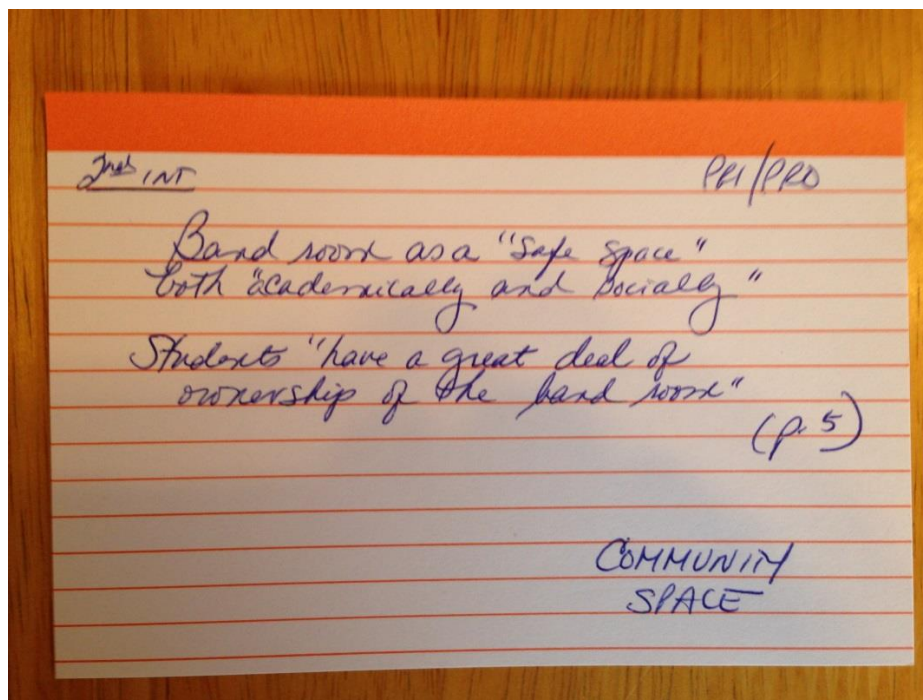 2nd INT
PRI/PRO
Band room as a "Safe Space"
both "academically and socially"
Students "have a great deal of
ownership of the band room"
(p. 5)
COMMUNITY
SPACE